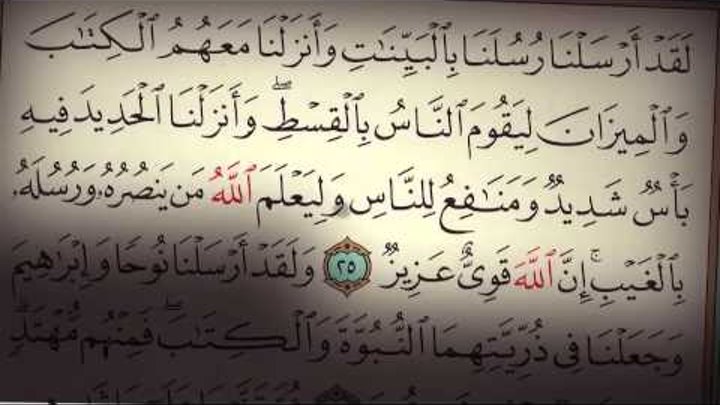 لَقَدْ أَرْسَلْنَا رُسُلَنَا بِٱلْبَيِّنَٰتِ وَأَنزَلْنَا مَعَهُمُ ٱلْكِتَٰبَ
وَٱلْمِيزَانَ لِيَقُومَ ٱلنَّاسُ بِٱلْقِسْطِۖ وَأَنزَلْنَا ٱلْحَدِيدَ فِيهِ
بَأْسٌ شَدِيدٌ وَمَنَٰفِعُ لِلنَّاسِ وَلِيَعْلَمَ ٱللَّهُ مَن يَنصُرُهُۥ وَرُسُلَهُۥ
بِٱلْغَيْبِۚ إِنَّ ٱللَّهَ قَوِىٌّ عَزِيزٌ ٢٥ وَلَقَدْ أَرْسَلْنَا نُوحًا وَإِبْرَٰهِيمَ
وَجَعَلْنَا فِى ذُرِّيَّتِهِمَا ٱلنُّبُوَّةَ وَٱلْكِتَٰبَۖ فَمِنْهُم مُّهْتَدٍۖ